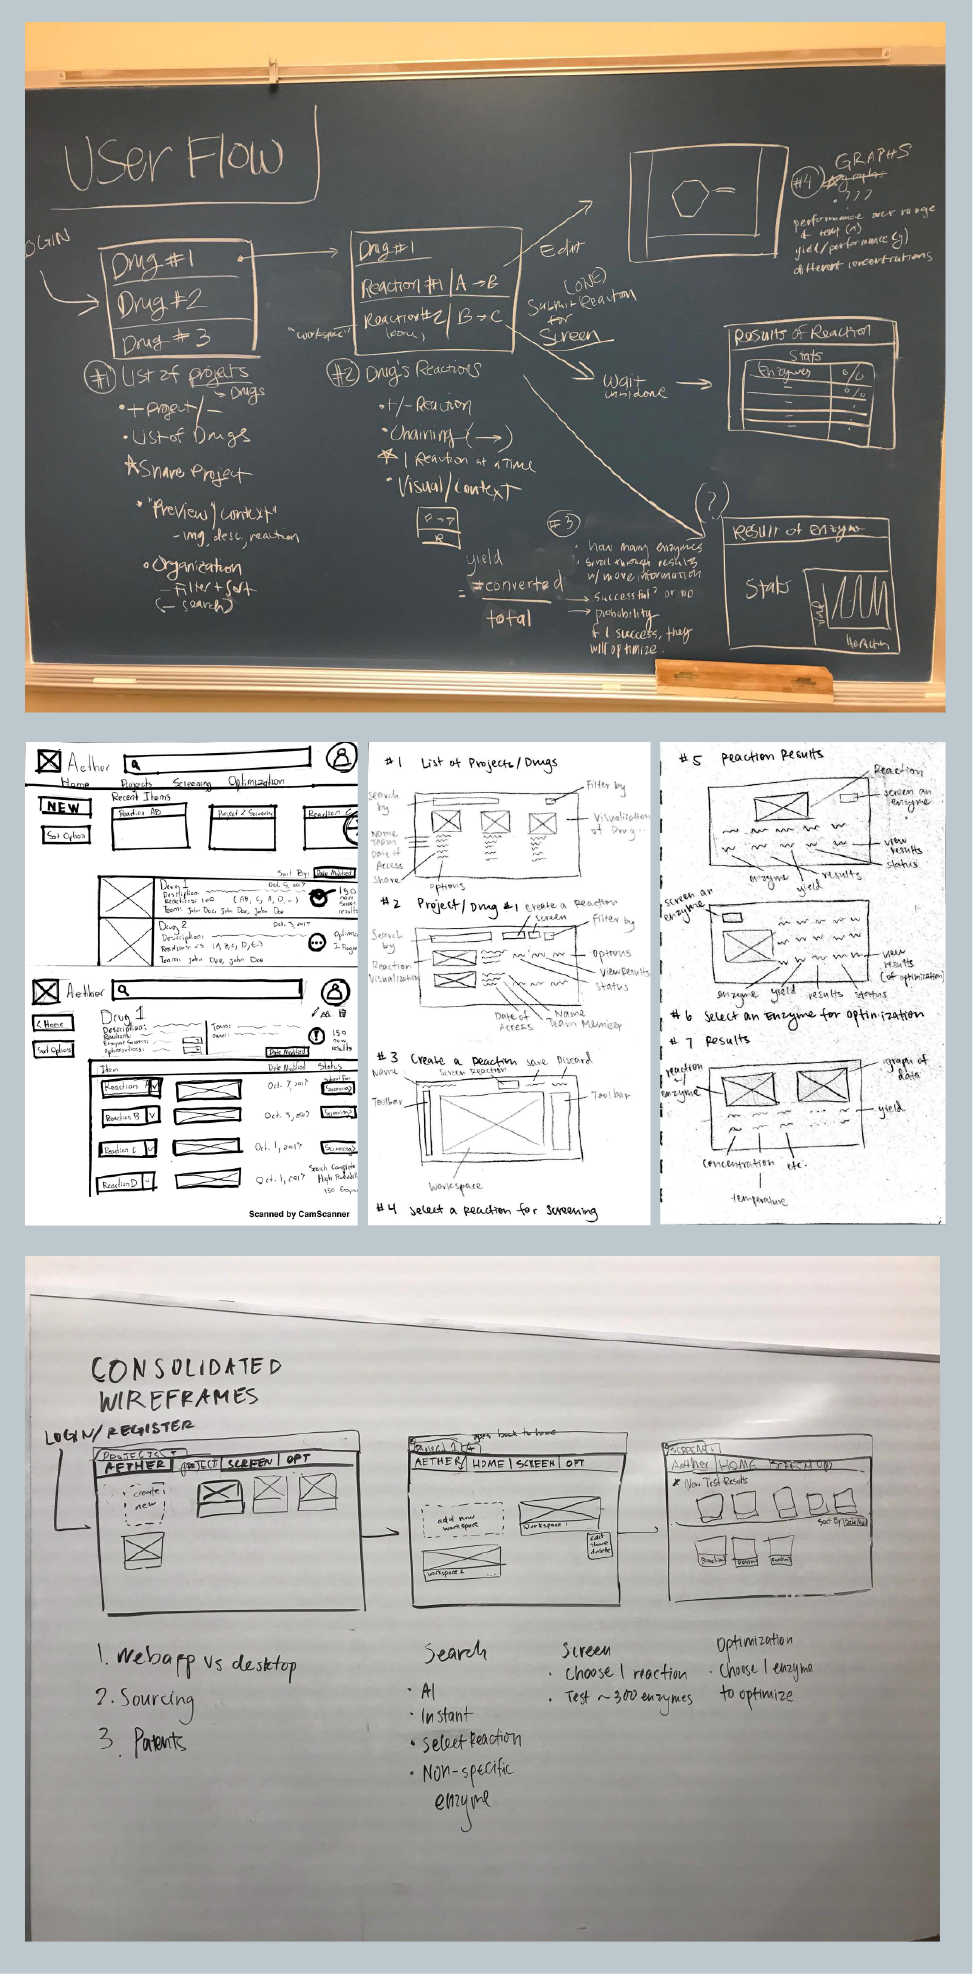 USER FLOW
LOGIN
Drug #1
Drug #2
Drug #3
#1 List of projects
Drugs
• + Project / -
• List of Drugs
★ Share Project
• "Preview/context"
- img, desc, reaction
• Organization
- Filter + Sort
(- search)
Drug #1
Reaction #1 | A → B
Reaction #2 | B → C
"workspace"
#2 Drug's Reactions
• +/- Reaction
• Chaining (→)
★ 1 Reaction at a Time
• Visual/Context
yield
= #converted
total
Edit
(ONE)
Submit Reaction
for
Screen
Wait
until done
#4
GRAPHS
• ???
performance over range
yield/performance (y)
different concentrations
Results of Reaction
Stats
Enzymes
%
%
#3
• how many enzymes
• scroll through results
w/ more information
→ successful? or no
→ probability
if 1 success, they
will optimize.
(?)
Result of Enzyme
Stats
Aether
Home Projects Screening Optimization
NEW
Sort Option
Recent Items
Reaction AB
Project 2 Screening
Sort By: Date Modified
Drug 1
Oct. 5, 2017
Description:
Team: John Doe, John Doe, John Doe
150
new
results
Drug 2
Oct. 3, 2017
Description:
Team: John Doe, John Doe
Aether
< Home
Sort Option
Drug 1
Description:
Team:
Date Modified
150
new
results
Item Date Modified Status
Reaction A
Oct. 7, 2017
Screening
Reaction B
Oct. 3, 2017
Screening
Reaction C
Oct. 1, 2017
Screening
Reaction D
Oct. 1, 2017
Scanned by CamScanner
#1 List of Projects/Drugs
Search by
Filter by
Visualization of Drug
Name
Team
Date of Access
Share
options
#2 Project/Drug #1
create a Reaction
screen
Filter by
Search by
Reaction Visualization
options
View Results
status
Name
Team Member
Date of Access
#3 Create a Reaction
Name
Screen Reaction
save
Discard
Toolbar
Toolbar
Workspace
#4 Select a Reaction for Screening
#5 Reaction Results
Reaction
screen an enzyme
view results
status
enzyme
yield
results
screen an enzyme
view results (of optimization)
enzyme yield results status
#6 Select an Enzyme for Optimization
#7 Results
reaction w/ enzyme
graph of data
yield
concentration
etc.
temperature
CONSOLIDATED
WIREFRAMES
LOGIN/REGISTER
AETHER PROJECT SCREEN OPT
create
new
goes back to home
AETHER HOME SCREEN OPT
add new
workspace
workspace 1
edit
share
delete
workspace 2
SCREEN
Aether HOME SCREEN OPT
★ New Test Results
Sort By
1. Webapp vs desktop
2. Sourcing
3. Patents
Search
• AI
• Instant
• Select Reaction
• Non-specific
enzyme
Screen
• Choose 1 reaction
• Test ~300 enzymes
Optimization
• Choose 1 enzyme
to optimize